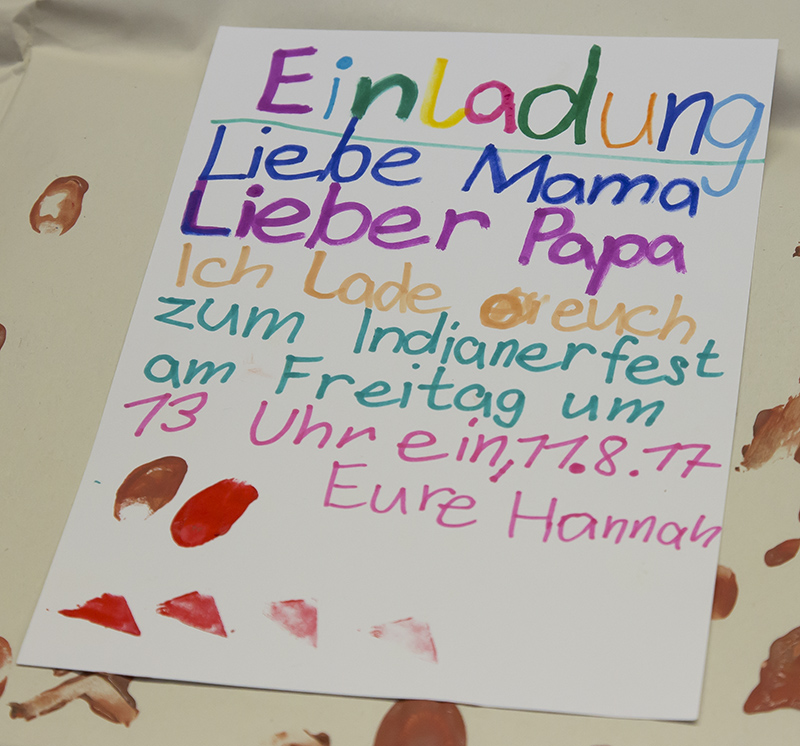 Einladung
Liebe Mama
Lieber Papa
Ich Lade euch
zum Indianerfest
am Freitag um
13 Uhr ein, 11.8.17
Eure Hannah